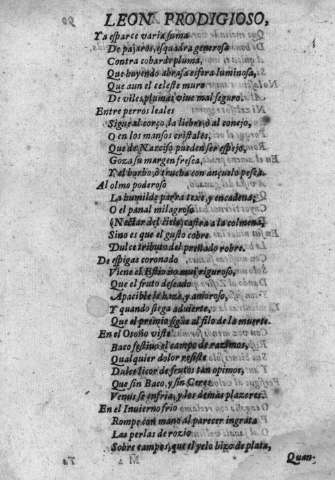 LEON PRODIGIOSO,
Ya esparce varia suma
De pajaros, esquadra generosa
Contra cobarde pluma,
Que huyendo abrasa esfera luminosa,
Que aun el celeste muro
De viles plumas viue mal seguro.
Entre perros leales
Sigue al corço, la liebre, ò al conejo,
O en los mansos cristales,
Que de Narciso pueden ser espejo,
Goza su margen fresca,
Y el barbo, ò trucha con ançuelo pesca.
Al olmo poderoso
La humilde parra texe, y encadena,
O el panal milagroso
(Nectar del cielo) castra a la colmena,
Sino es que el gusto cobre
Dulce tributo del preñado robre.
De espigas coronado
Viene el Estio no mui riguroso,
Que el fruto deseado
Apacible le haze, y amoroso,
Y quando siega aduierte,
Que el premio sigue al filo de la muerte.
En el Otoño viste
Baco festiuo el campo de razimos,
Qualquier dolor resiste
Dulce licor de frutos tan opimos,
Que sin Baco, y sin Ceres
Venus se enfria, y los demas plazeres.
En el Inuierno frio
Rompe con mano al parecer ingrata
Las perlas de rozio
Sobre campos, que el yelo hizo de plata,
Quan-